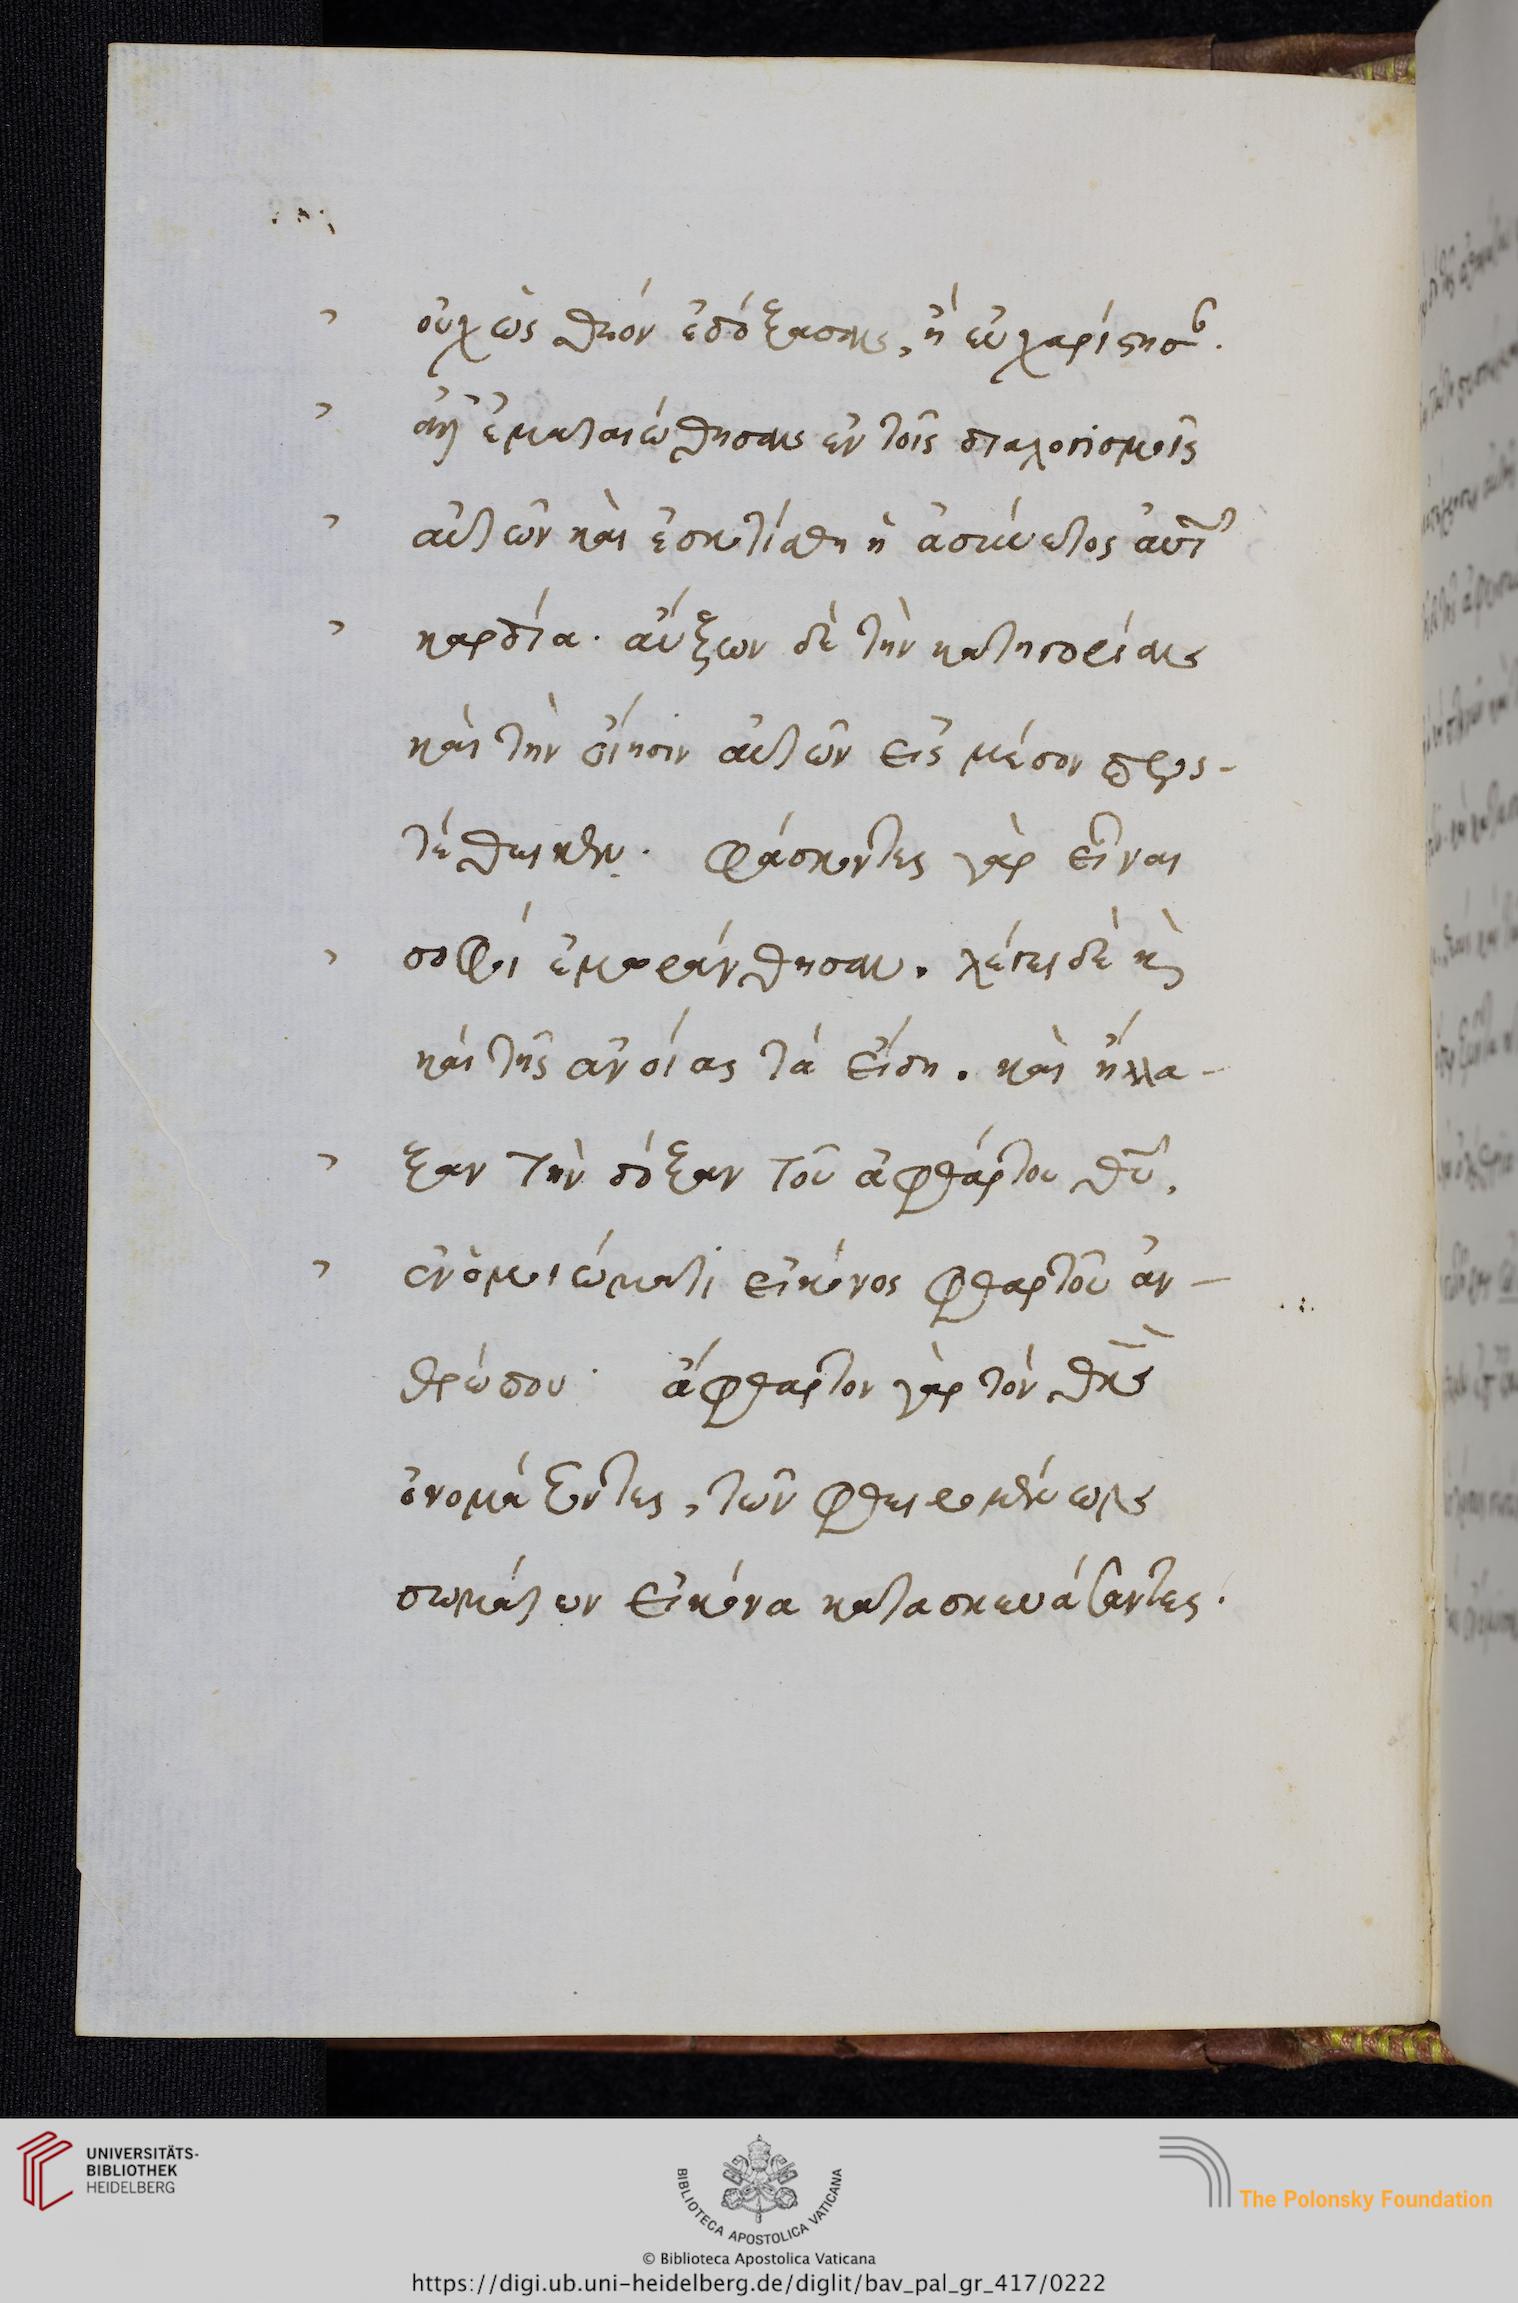 οὐχ ὡς θεὸν ἐδόξασαν, ἢ εὐχαρίστησαν.
ἀλλ' ἐματαιώθησαν ἐν τοῖς διαλογισμοῖς
αὐτῶν καὶ ἐσκοτίσθη ἡ ἀσύνετος αὐτῶν
καρδία. αὔξων δὲ τὴν κατηγορίαν
καὶ τὴν οἴησιν αὐτῶν εἰς μέσον προς-
τέθεικεν. φάσκοντες γὰρ εἶναι
σοφοὶ ἐμωράνθησαν. λέγει δὲ καὶ
καὶ τῆς ἀνοίας τὰ εἴδη. καὶ ἤλλα-
ξαν τὴν δόξαν τοῦ ἀφθάρτου θυ,
ἐν ὁμοιώματι εἰκόνος φθαρτοῦ ἀν-
θρώπου. ἄφθαρτον γὰρ τὸν θν
ὀνομάζοντες, τῶν φθειρομένων
σωμάτων εἰκόνα κατασκευάζοντες.
UNIVERSITÄTS-
BIBLIOTHEK
HEIDELBERG
BIBLIOTECA APOSTOLICA VATICANA
The Polonsky Foundation
© Biblioteca Apostolica Vaticana
https://digi.ub.uni-heidelberg.de/diglit/bav_pal_gr_417/0222